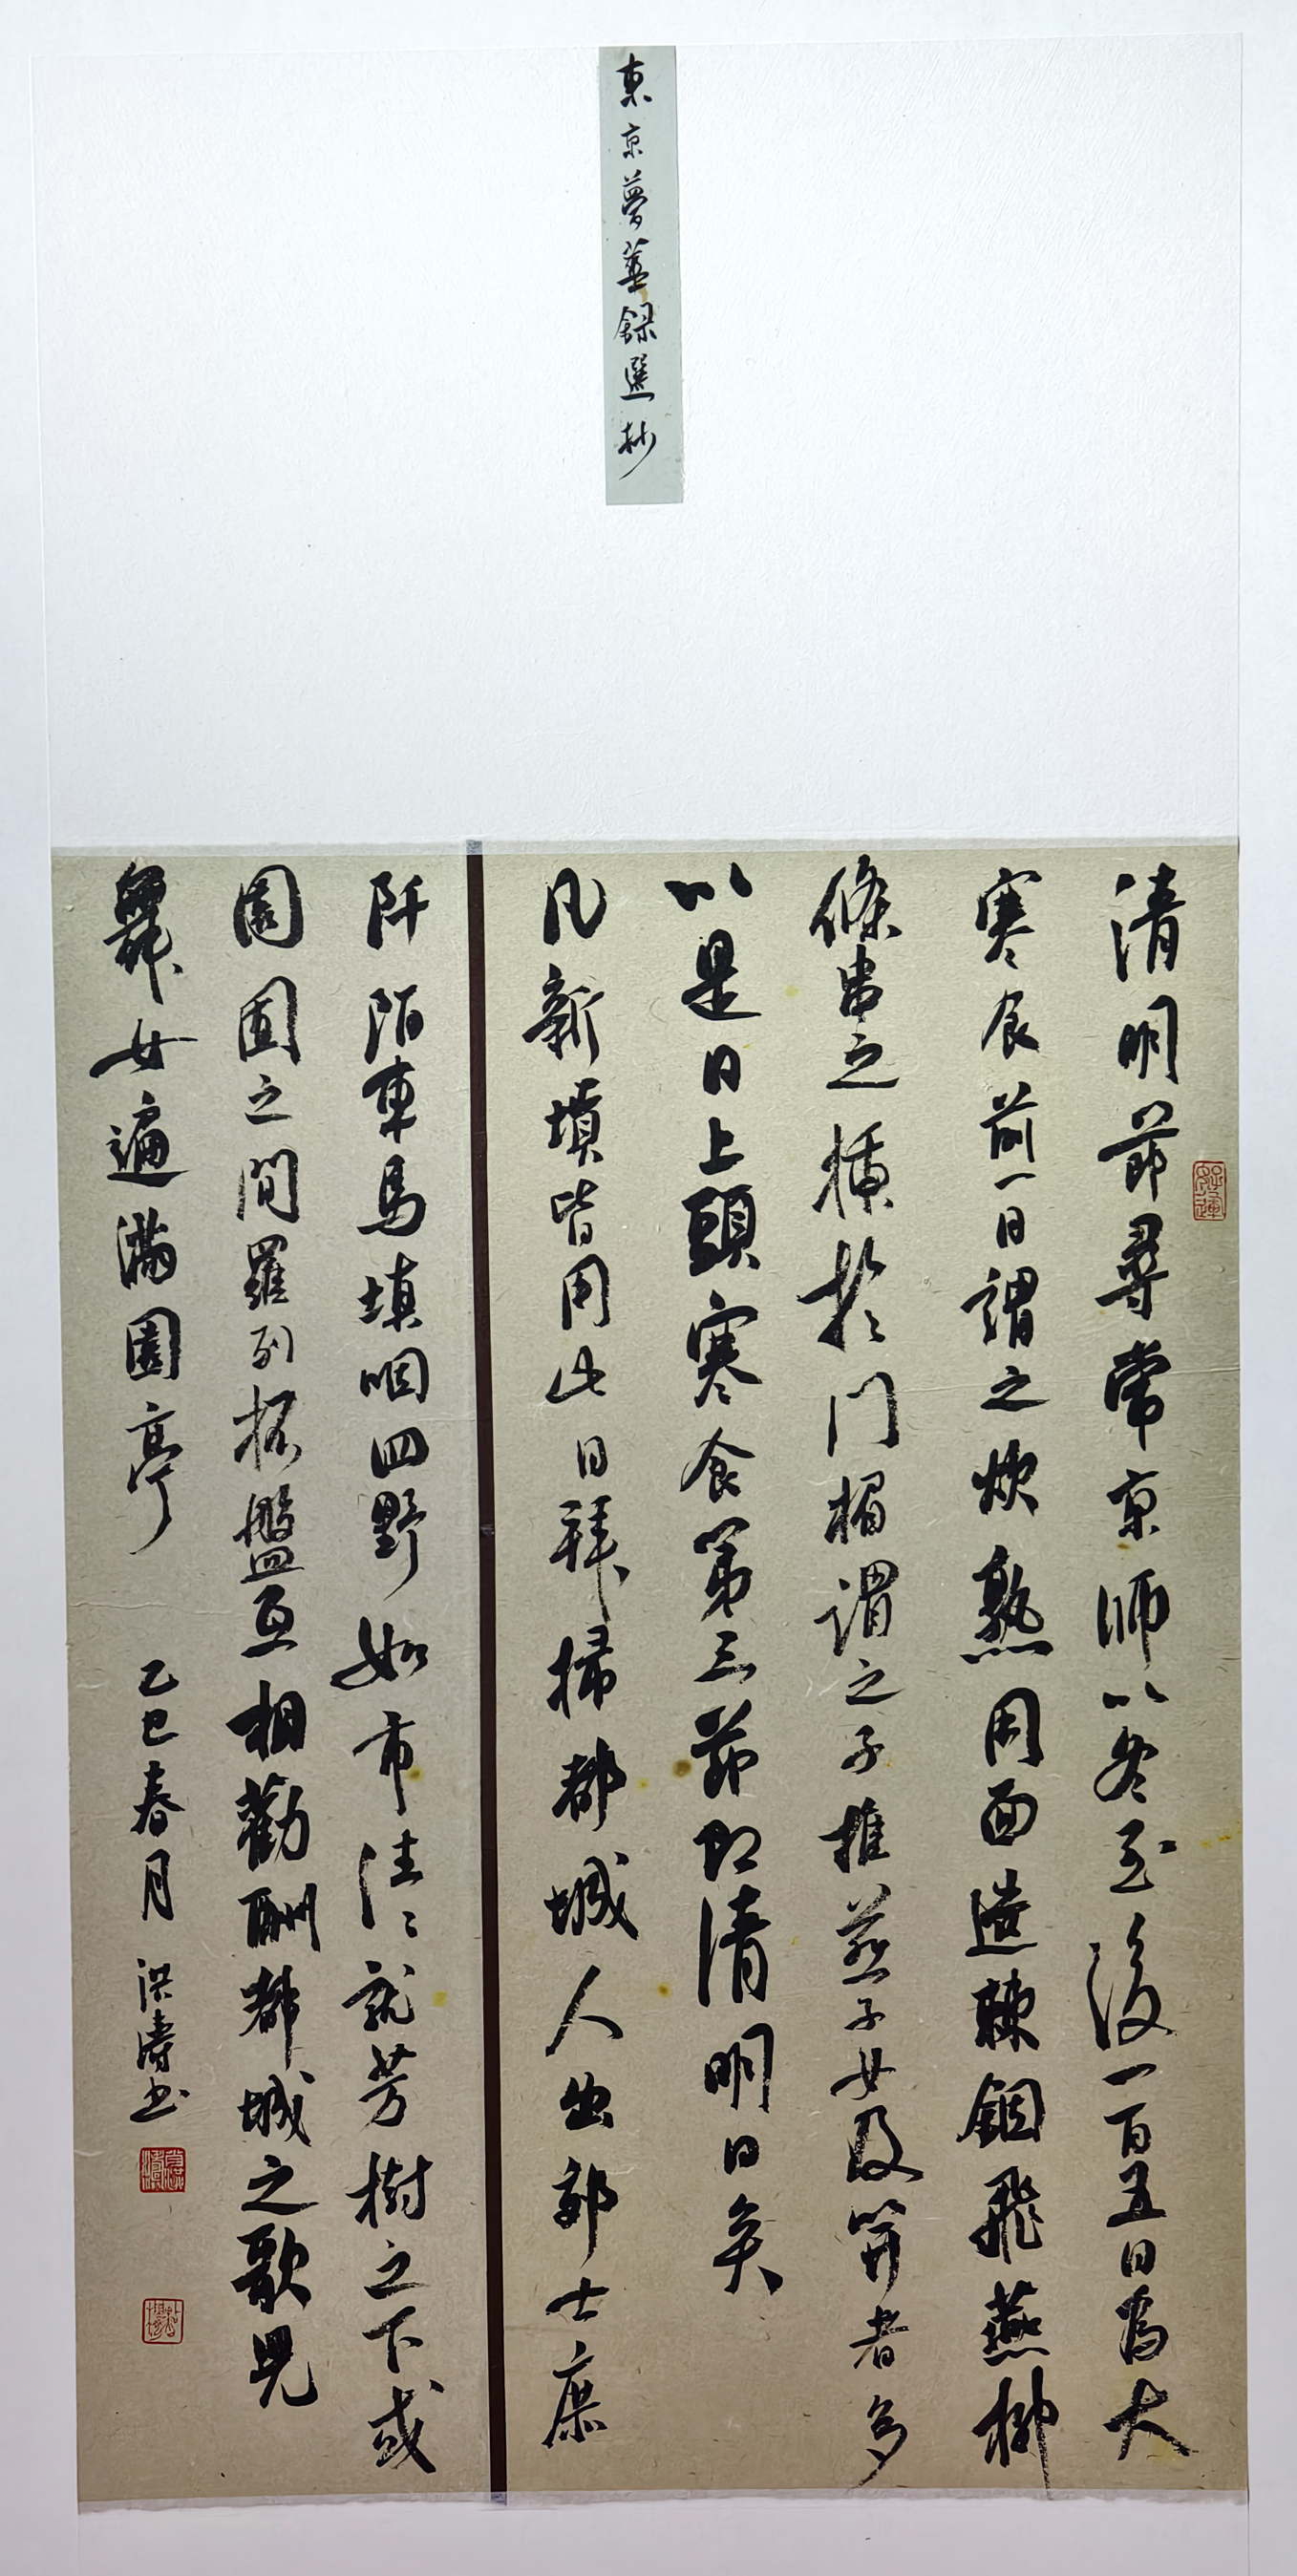 東京夢華錄選抄
清明節尋常京師以冬至後一百五日為大
寒食前一日謂之炊熟用面造棗錮飛燕柳
條串之插於門楣謂之子推燕子女及笄者多
以是日上頭寒食第三節即清明日矣
凡新墳皆用此日拜掃都城人出郊士庶
阡陌車馬填咽四野如市往〻就芳樹之下或
園囿之間羅列杯盤互相勸酬都城之歌兒
舞女遍滿園亭
乙巳春月 洪濤书
好運